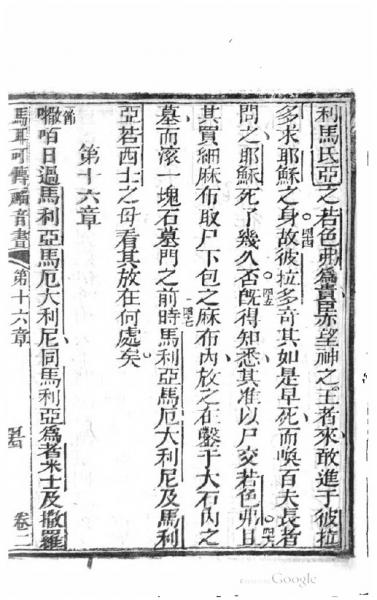 利馬氏亞之若色弗為貴臣亦望神之王者來敢進于彼拉
多求耶穌之身故彼拉多奇其如是早死而喚百夫長者
問之耶穌死了幾久否既得知悉其准以尸交若色弗且
其買細麻布取尸下包之麻布內放之在鑿于大石內之
墓而滾一塊石墓門之前時馬利亞馬厄大利尼及馬利
亞若西士之母看其放在何處矣
第十六章
𠾖咟日過馬利亞馬厄大利尼同馬利亞為者米士及撒羅
馬耳可傳福音書 第十六章 卷二
Google